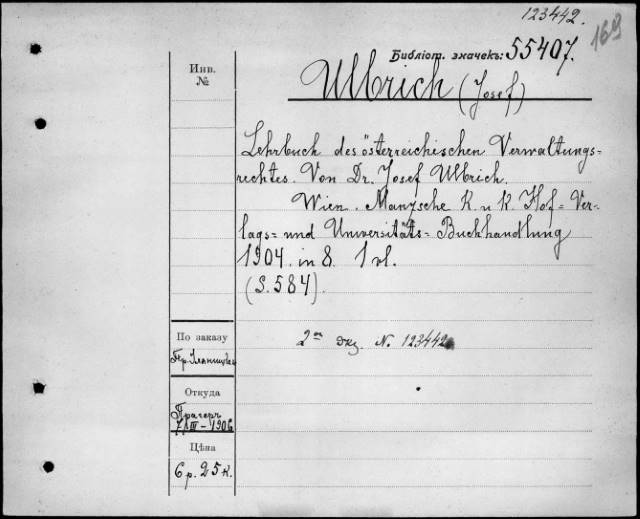 123442.
169
Библіот. значекъ: 55407.
Инв.
№
Ulbrich (Josef)
Lehrbuch des österreichischen Verwaltungs=
rechtes. Von Dr. Josef Ulbrich.
Wien. Manzsche K. u. K. Hof= Ver-
lags= und Universitäts= Buchhandlung
1904. in 8. 1 vl.
(S. 584).
По заказу
2ой экз. N. 123442
Откуда
Прагеръ
7/III–1906
Цѣна
6 р. 25 к.